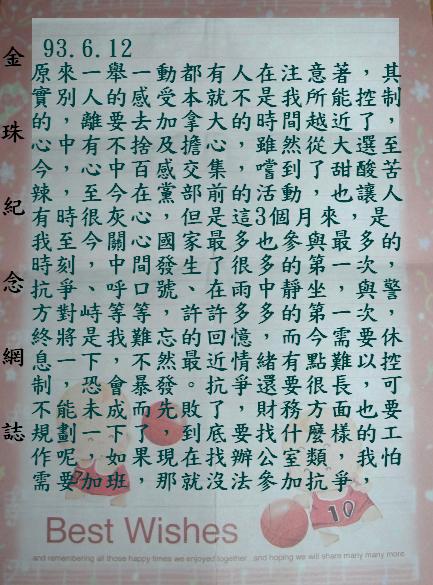 金珠紀念網誌
93.6.12
原來一舉一動都有人在注意著，其
實別人的感受本就不是我所能控制
的，離要去加拿大的時間越近了，
心中有不捨及擔心，雖然從大選至
今，心中百感交集，嚐到了甜酸苦
辣，至今在黨部前的活動，也讓人
有時很灰心，但是這3個月來，是
我至今關心國家最多也參與最多的
時刻，中間發生了很多的第一次，
抗爭、呼口號、在雨中靜坐，與警
方對峙等等，許許多多的第一次，
終將是我難忘的回憶，而今需要休
息一下，不然最近情緒有點難以控
制，恐會暴發。抗爭還要很長，可
不能未成而先敗了，財務方面也要
規劃一下了，到底要找什麼樣的工
作呢，如果現在找辦公室類，我怕
需要加班，那就沒法參加抗爭，
10
Best Wishes
and remembering all those happy times we enjoyed together...and hoping we will share many many more